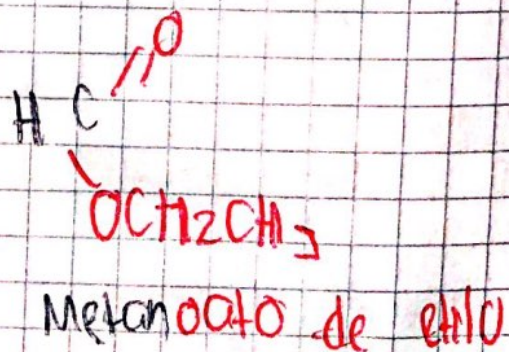 O
H C
OCH2CH3
Metanoato de etilo